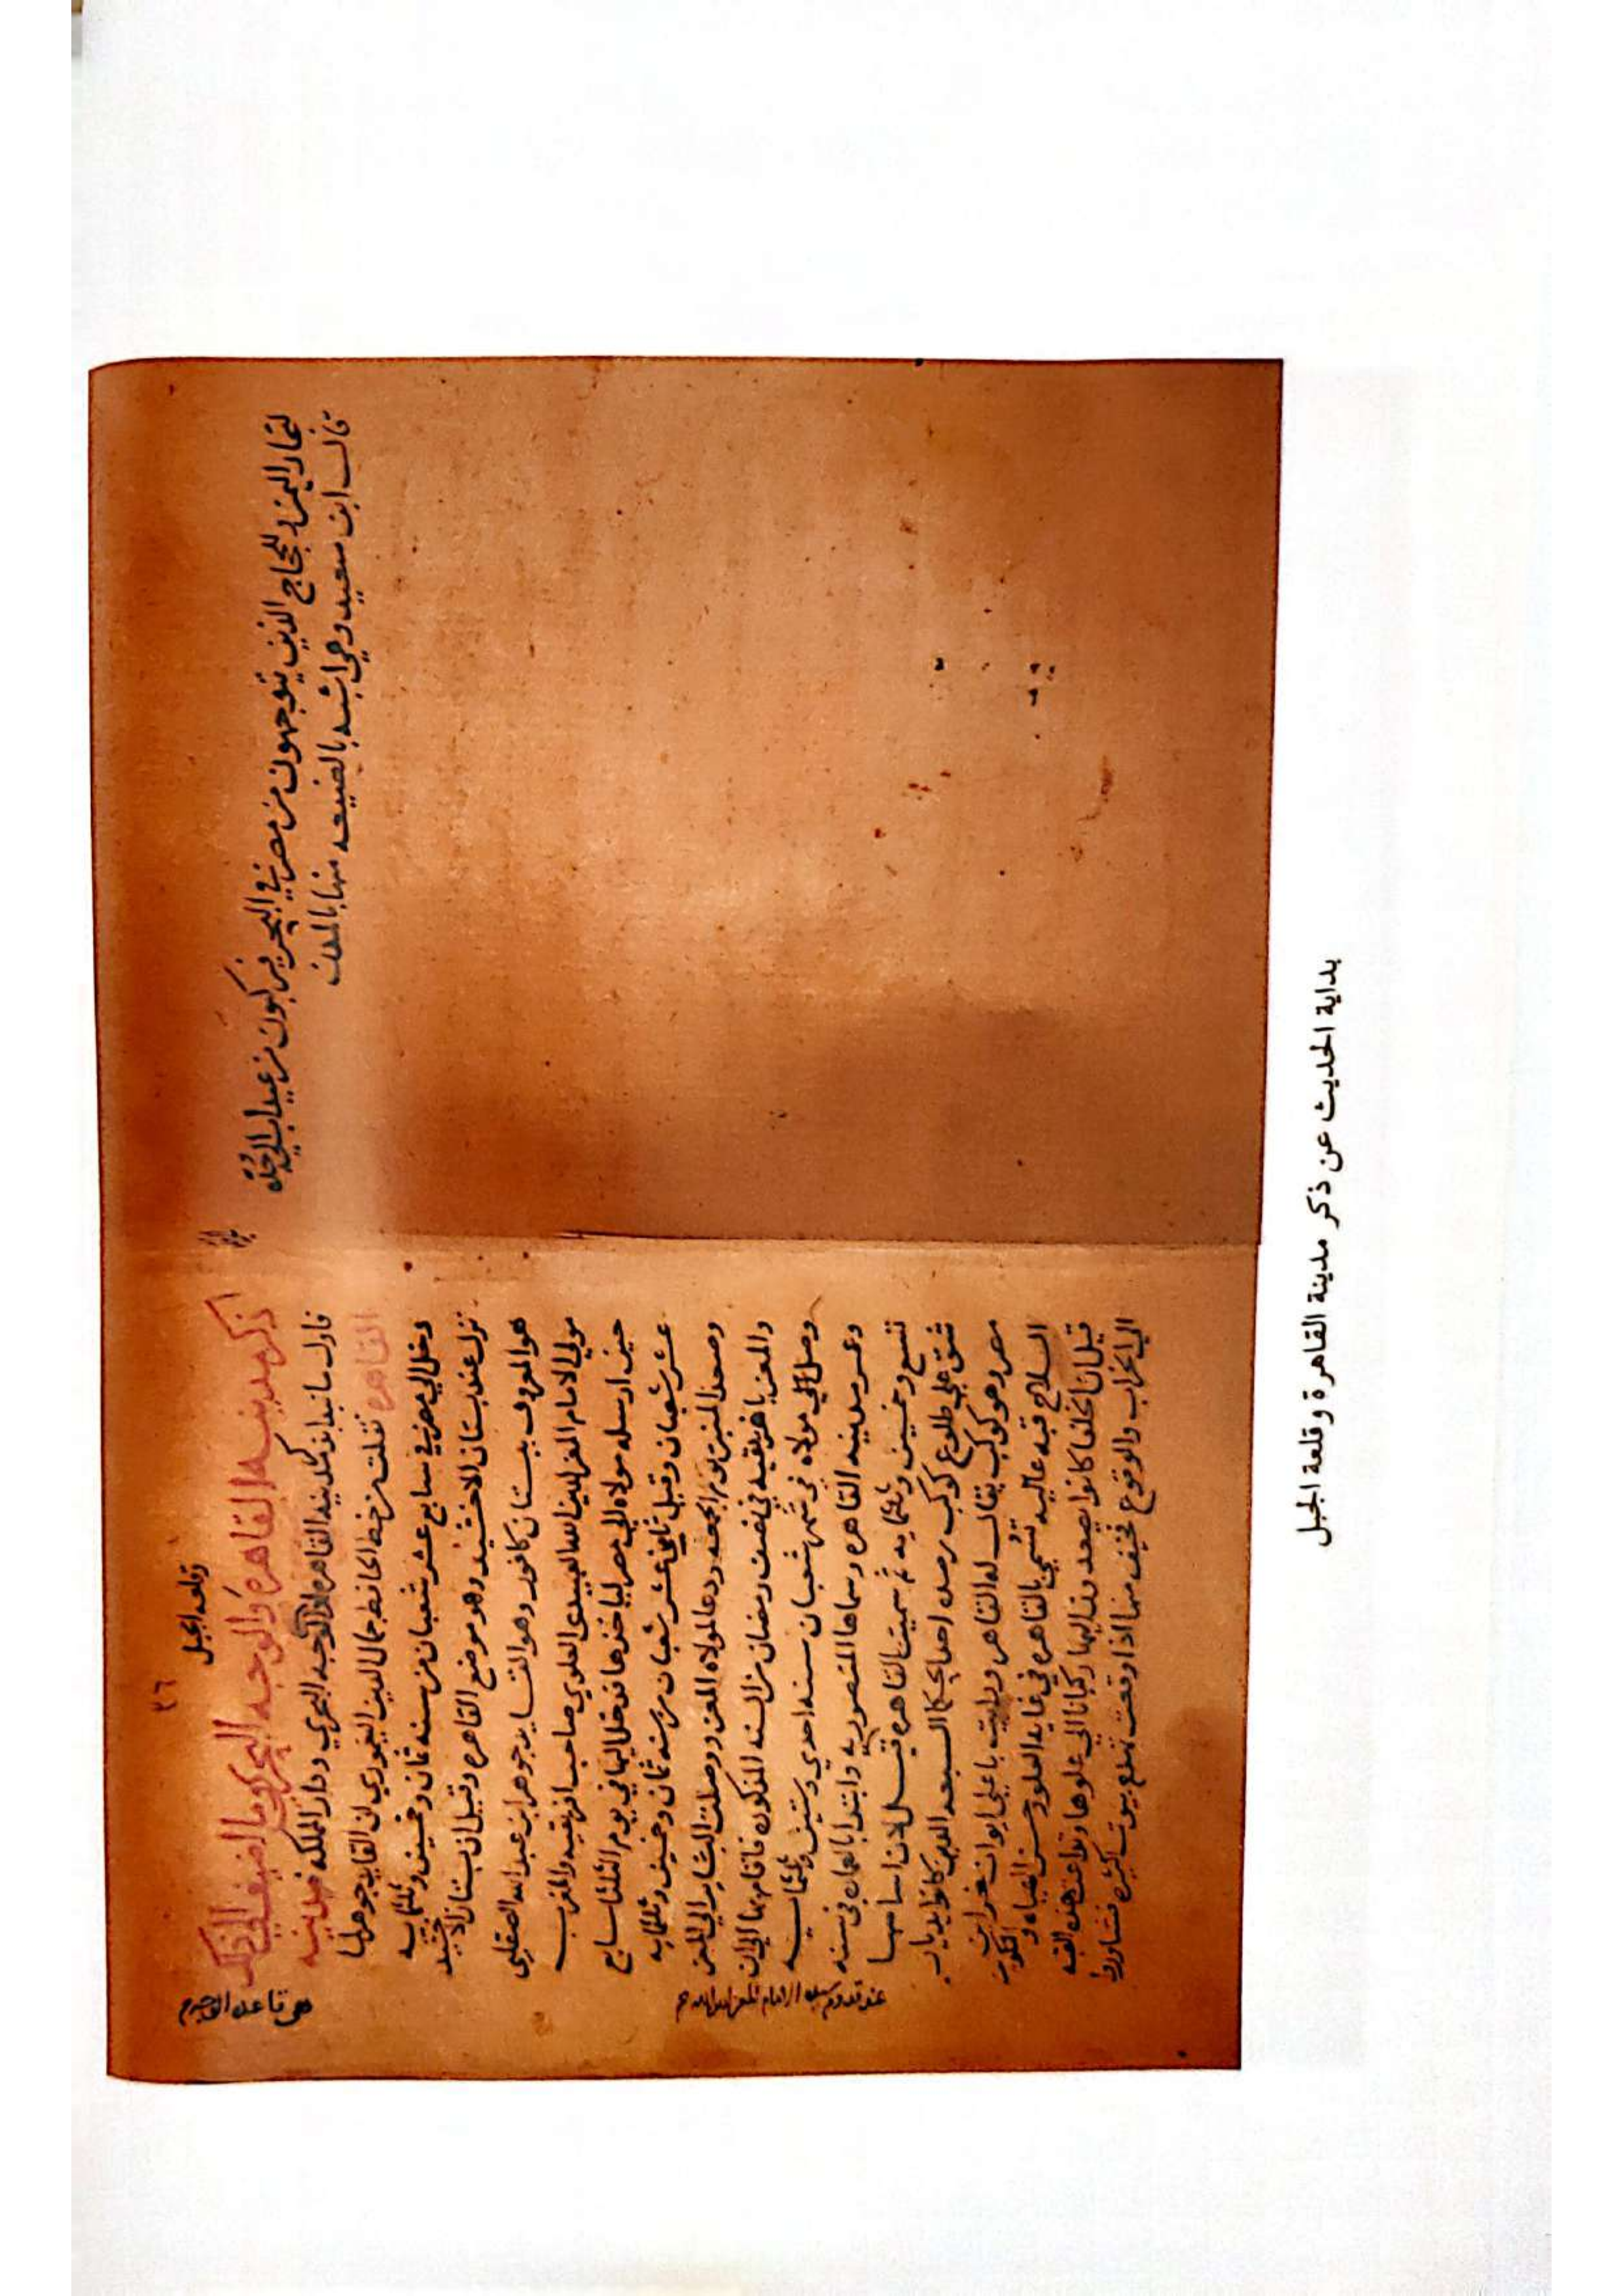 لتجار اليمن والحجاج الذين يتوجهون من مصر في البحر فيركبون من عيداب الي جده
قال ابن سعيد وهي اشبه بالضيعه منها بالمدن
٢٦
وقلعه الجبل
ذكر مدينه القاهره والوجه البحري وما اضيف الي ذكر
فاول ما نبدا بذكر مدينه القاهره الوجه البحري ودار المملكه فمدينه
القاهره نقلت من خط الحافظ جمال الدين اليغموري ان القايد جوهر لما
دخل الي مصر في سابع عشر شعبان من سنه ثمان وخمسين وثلثمايه
نزل عند بستان الاخشيد وهو موضع القاهره وقيل ان بستان الاخشيد
هو المعروف ببستان كافور وهو القايد جوهر ابن عبد الله الصقلي
مولي الامام المعز لدين الله العبيدي العلوي صاحب افريقيه والمغرب
حين ارسله مولاه الي مصر لياخذها فدخل اليها في يوم الثلثا سابع
عشر شعبان وقيل ثامن عشر شعبان من سنه ثمان وخمسين وثلثمايه
وصعد المنبر يوم الجمعه ودعا لمولاه المعز ووصلت البشاير الي المعز
والمعز بافريقيه في نصف رمضان من السنه المذكوره فاقام بها الي ان
وصل الي مولاه في شهر شعبان سنه احدي وستين وثلثمايه
وعمر مدينه القاهره وسماها المنصوريه وابتدا بالعماره في سنه
تسع وخمسين وثلثمايه ثم سميت القاهره قيل لان اساسها
شق علي طلوع كوكب رصده احد الحكما السبعه الذين كانوا بديار
مصر وهو كوكب يقال له القاهر ورايت باعلي ايوان خزاين
السلاح قبه عاليه تسمي بالقاهره في غايه العلو وحسن الضياء والتكوين
قيل ان الخلفا كانوا يصعدون اليها ركبانا الي علوها وتداعت هذه القبه
الي الخراب والوقوع فخيف منها اذا وقعت تهدم بيوت كثيره فتشاوروا
هي قاعده
عند قدوم الامام المعز لدين الله
بداية الحديث عن ذكر مدينة القاهرة وقلعة الجبل